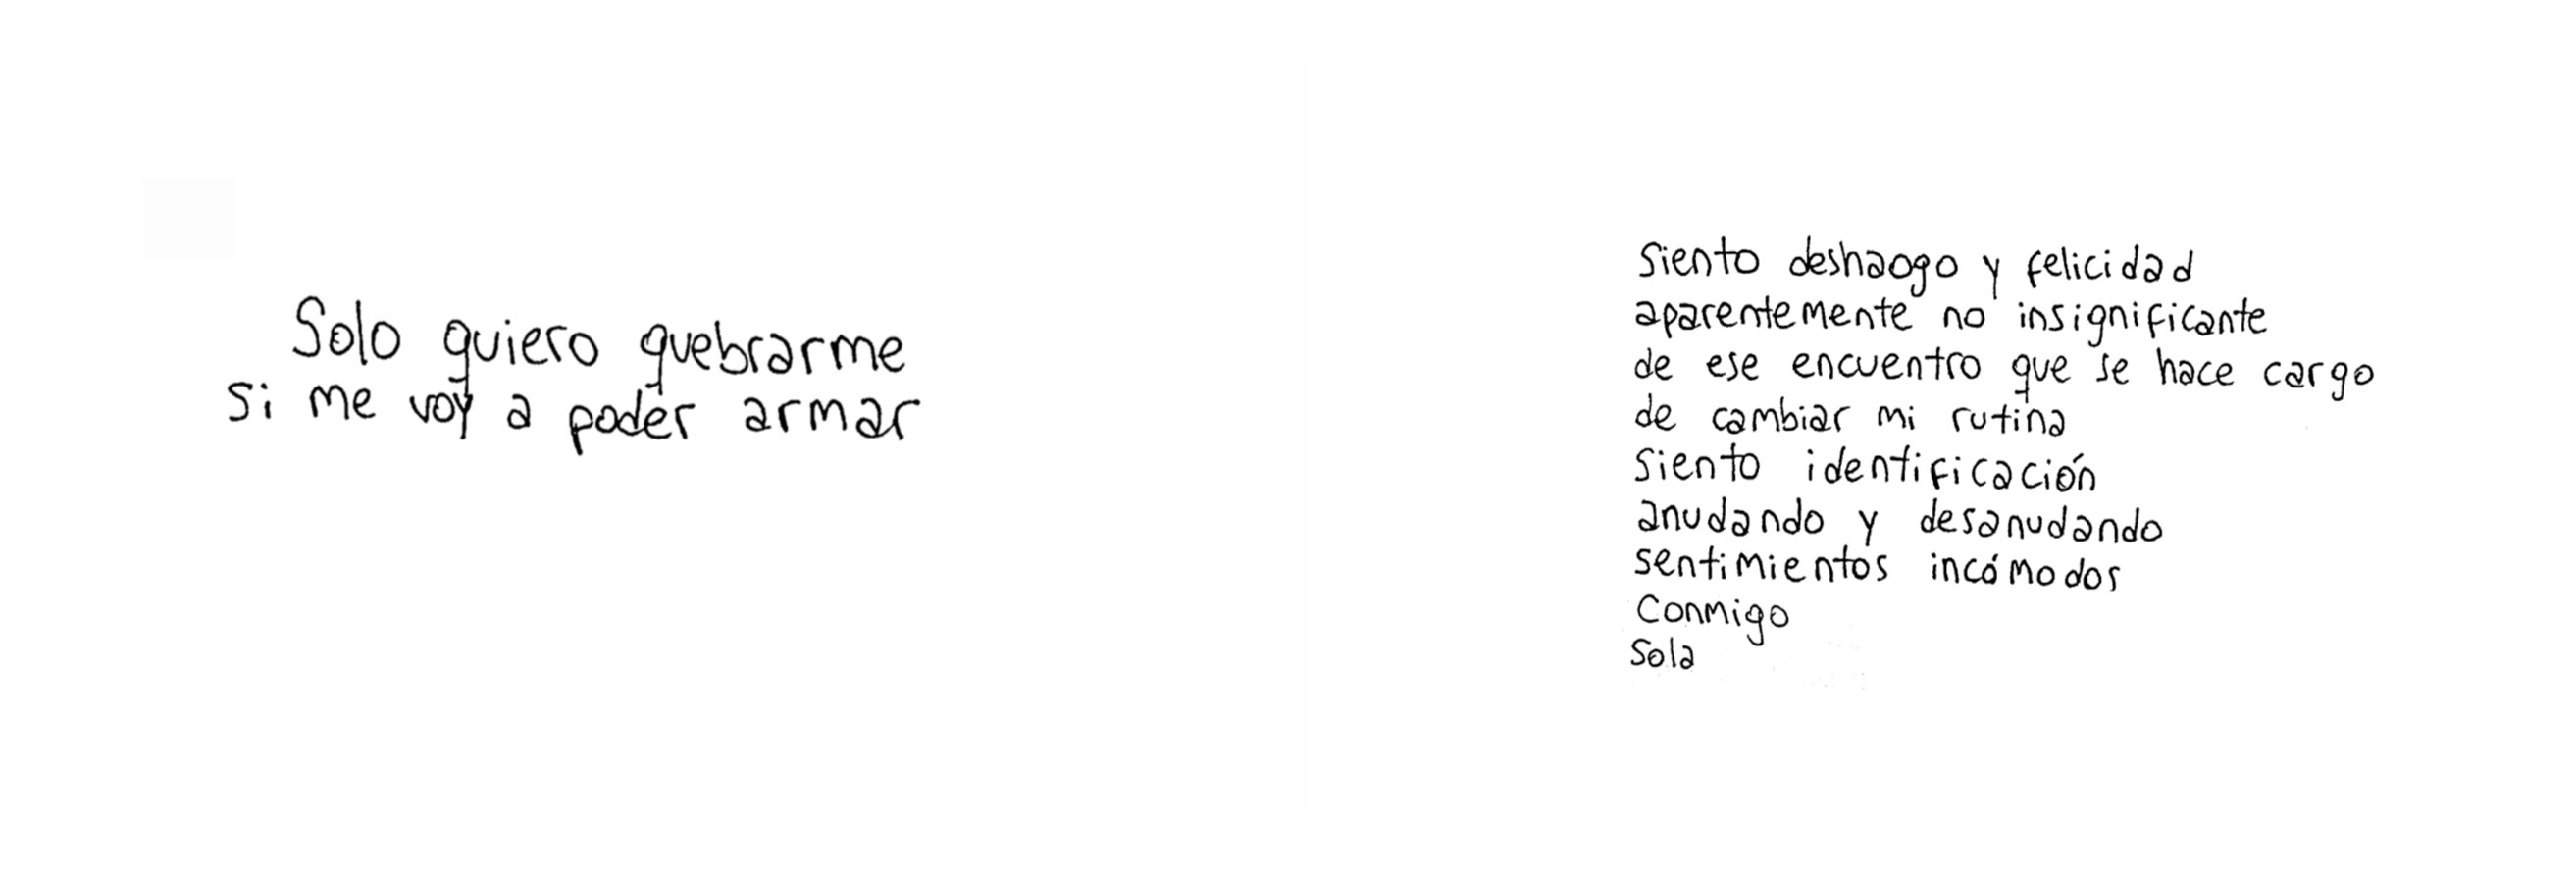 Solo quiero quebrarme
si me voy a poder armar
Siento deshaogo y felicidad
aparentemente no insignificante
de ese encuentro que se hace cargo
de cambiar mi rutina
Siento identificación
anudando y desanudando
sentimientos incómodos
Conmigo
Sola